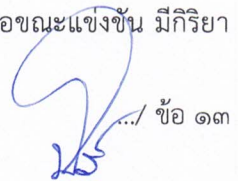 อขณะแข่งขัน มีกิริยา
.../ ข้อ ๑๓